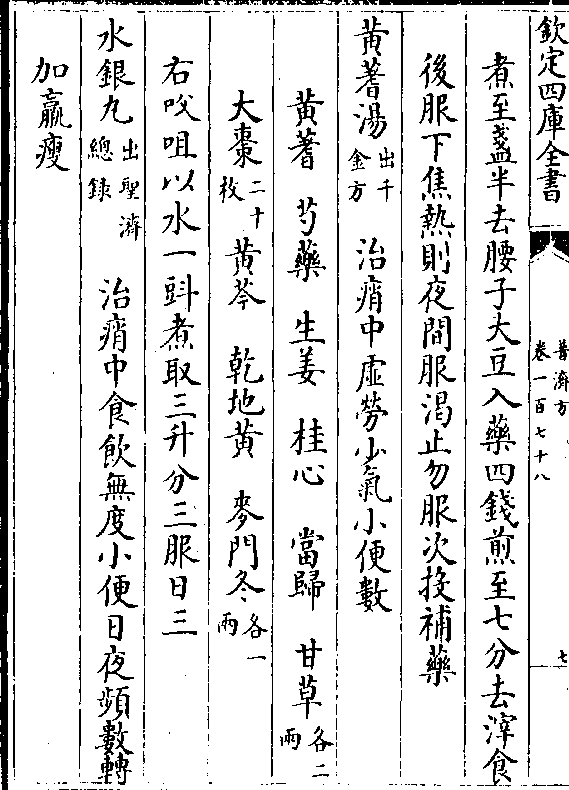 欽定四庫全書
普濟方
卷一百七十八
七
煮至盞半去腰子大豆入藥四錢煎至七分去滓食
後服下焦熱則夜間服渴止勿服次投補藥
黃蓍湯出千金方 治痟中虛勞少氣小便數
黃蓍 芍藥 生姜 桂心 當歸 甘草各二兩
大棗二十枚 黃芩 乾地黃 麥門冬各一兩
右㕮咀以水一㪷煮取三升分三服日三
水銀丸出聖濟總錄 治痟中食飲無度小便日夜頻數轉
加羸瘦